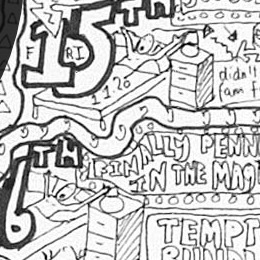 15TH
FRI
17.20
didn't
(am f
6TH
FINALLY PENN
IN THE MAG
TEMPT